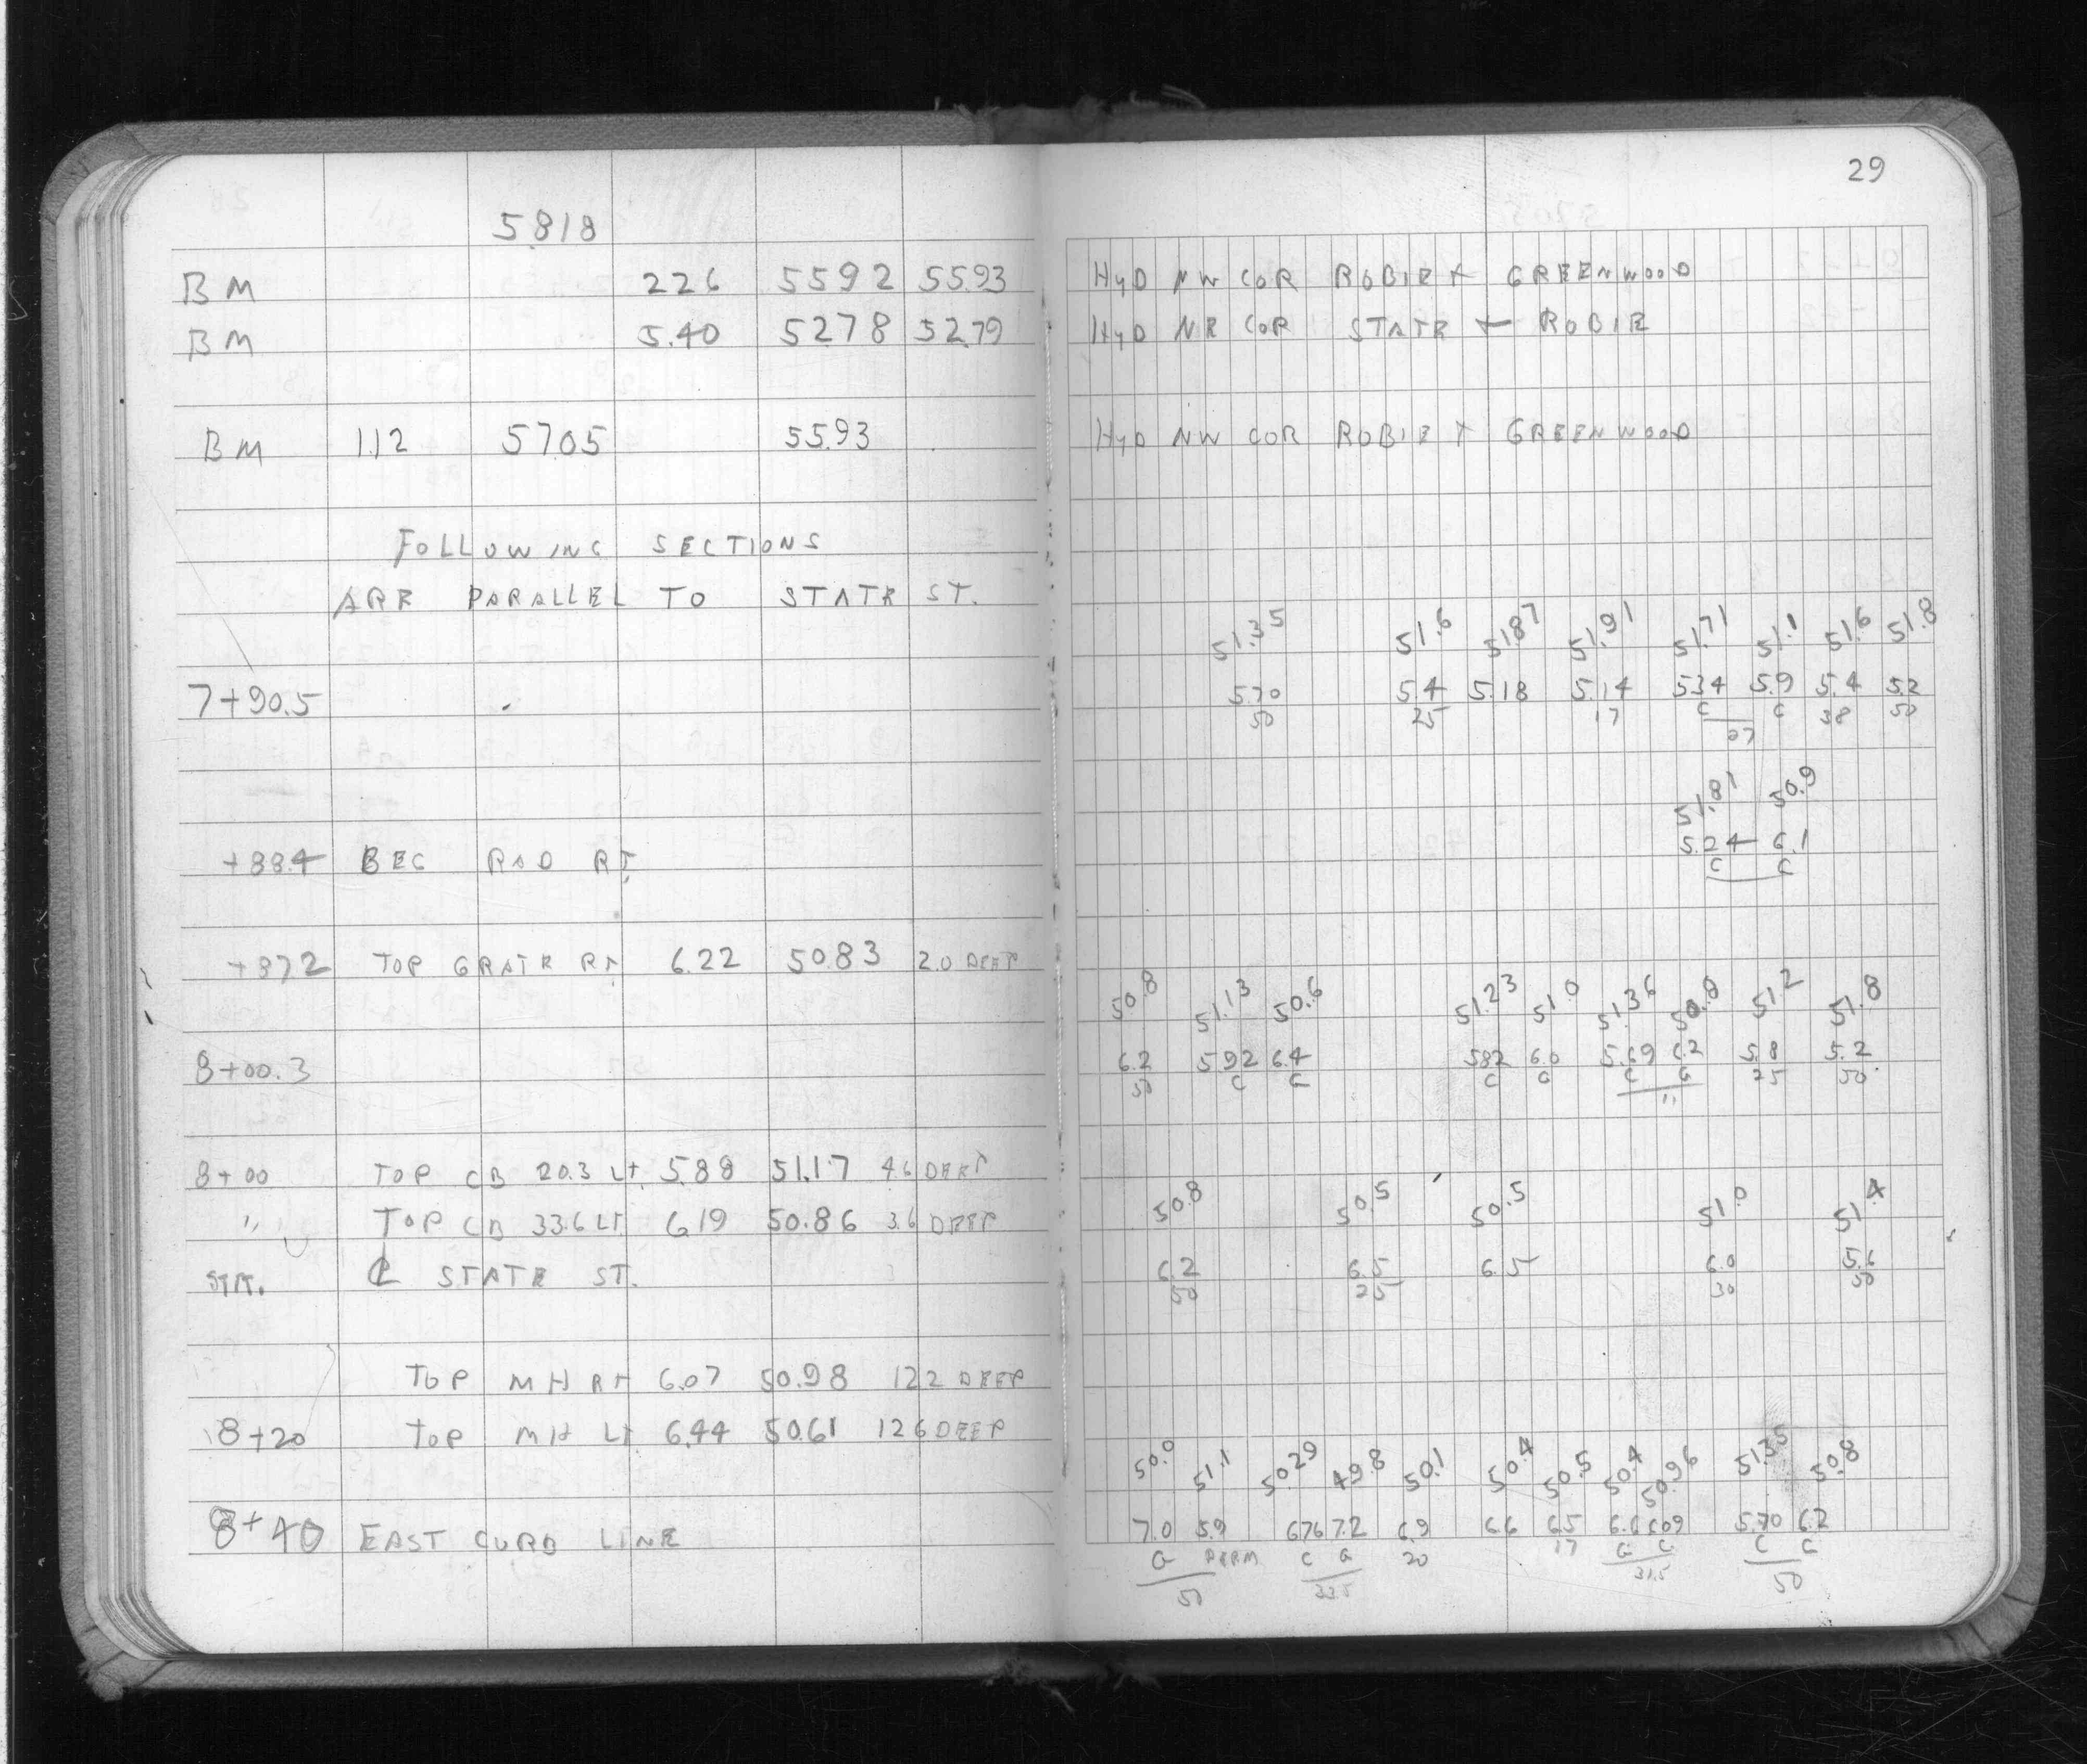 29
5818
BM 226 5592 55.93 HYD NW COR ROBIE + GREENWOOD
BM 5.40 5278 52.79 HYD NE COR STATE + ROBIE
BM 1.12 57.05 55.93 HYD NW COR ROBIE + GREENWOOD
FOLLOWING SECTIONS
ARE PARALLEL TO STATE ST.
51.35 51.6 51.87 51.91 51.71 51.1 51.6 51.8
7+90.5 5.70 5.4 5.18 5.14 5.34 5.9 5.4 5.2
50 25 17 C G 38 50
27
51.81 50.9
+88.4 BEG RAD RT. 5.24 6.1
C G
+87.2 TOP GRATE RT 6.22 50.83 2.0 DEEP
50.8 51.13 50.6 51.23 51.0 51.36 50.8 51.2 51.8
8+00.3 6.2 5.92 6.4 5.82 6.0 5.69 6.2 5.8 5.2
50 C G C G C G 25 50
11
8+00 TOP CB 20.3 LT. 5.88 51.17 4.6 DEEP
" TOP CB 33.6 LT. 6.19 50.86 3.6 DEEP
50.8 50.5 50.5 51.0 51.4
STA. ℄ STATE ST. 6.2 6.5 6.5 6.0 5.6
50 25 30 50
TOP MH RT 6.07 50.98 12.2 DEEP
8+20 TOP MH LT 6.44 50.61 12.6 DEEP
50.0 51.1 50.29 49.8 50.1 50.4 50.5 50.4 50.96 51.35 50.8
8+40 EAST CURB LINE 7.0 5.9 6.76 7.2 6.9 6.6 6.5 6.6 6.09 5.70 6.2
G BERM C G 20 17 G C C G
50 33.5 31.5 50